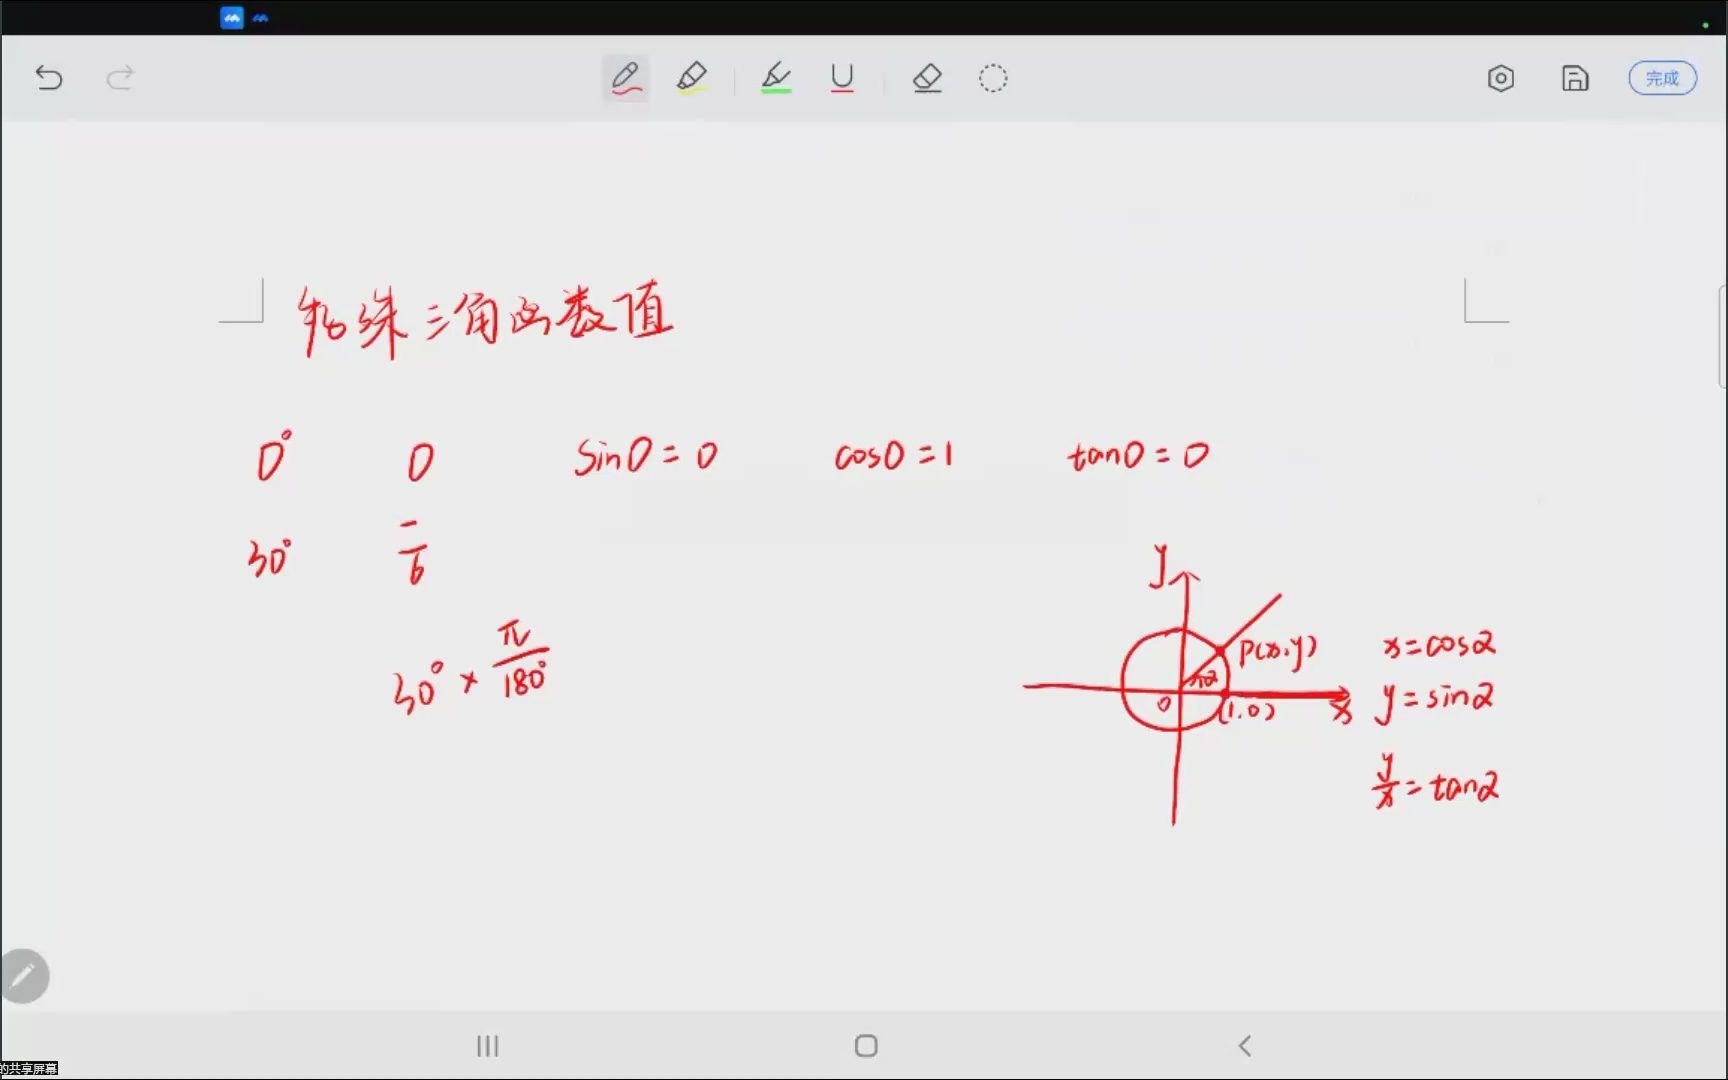 完成
特殊三角函数值
0° 0 sin0=0 cos0=1 tan0=0
30° 6
30° × π/180°
y
P(x,y)
α
0
(1,0)
x
x=cosα
y=sinα
y/x=tanα
的共享屏幕